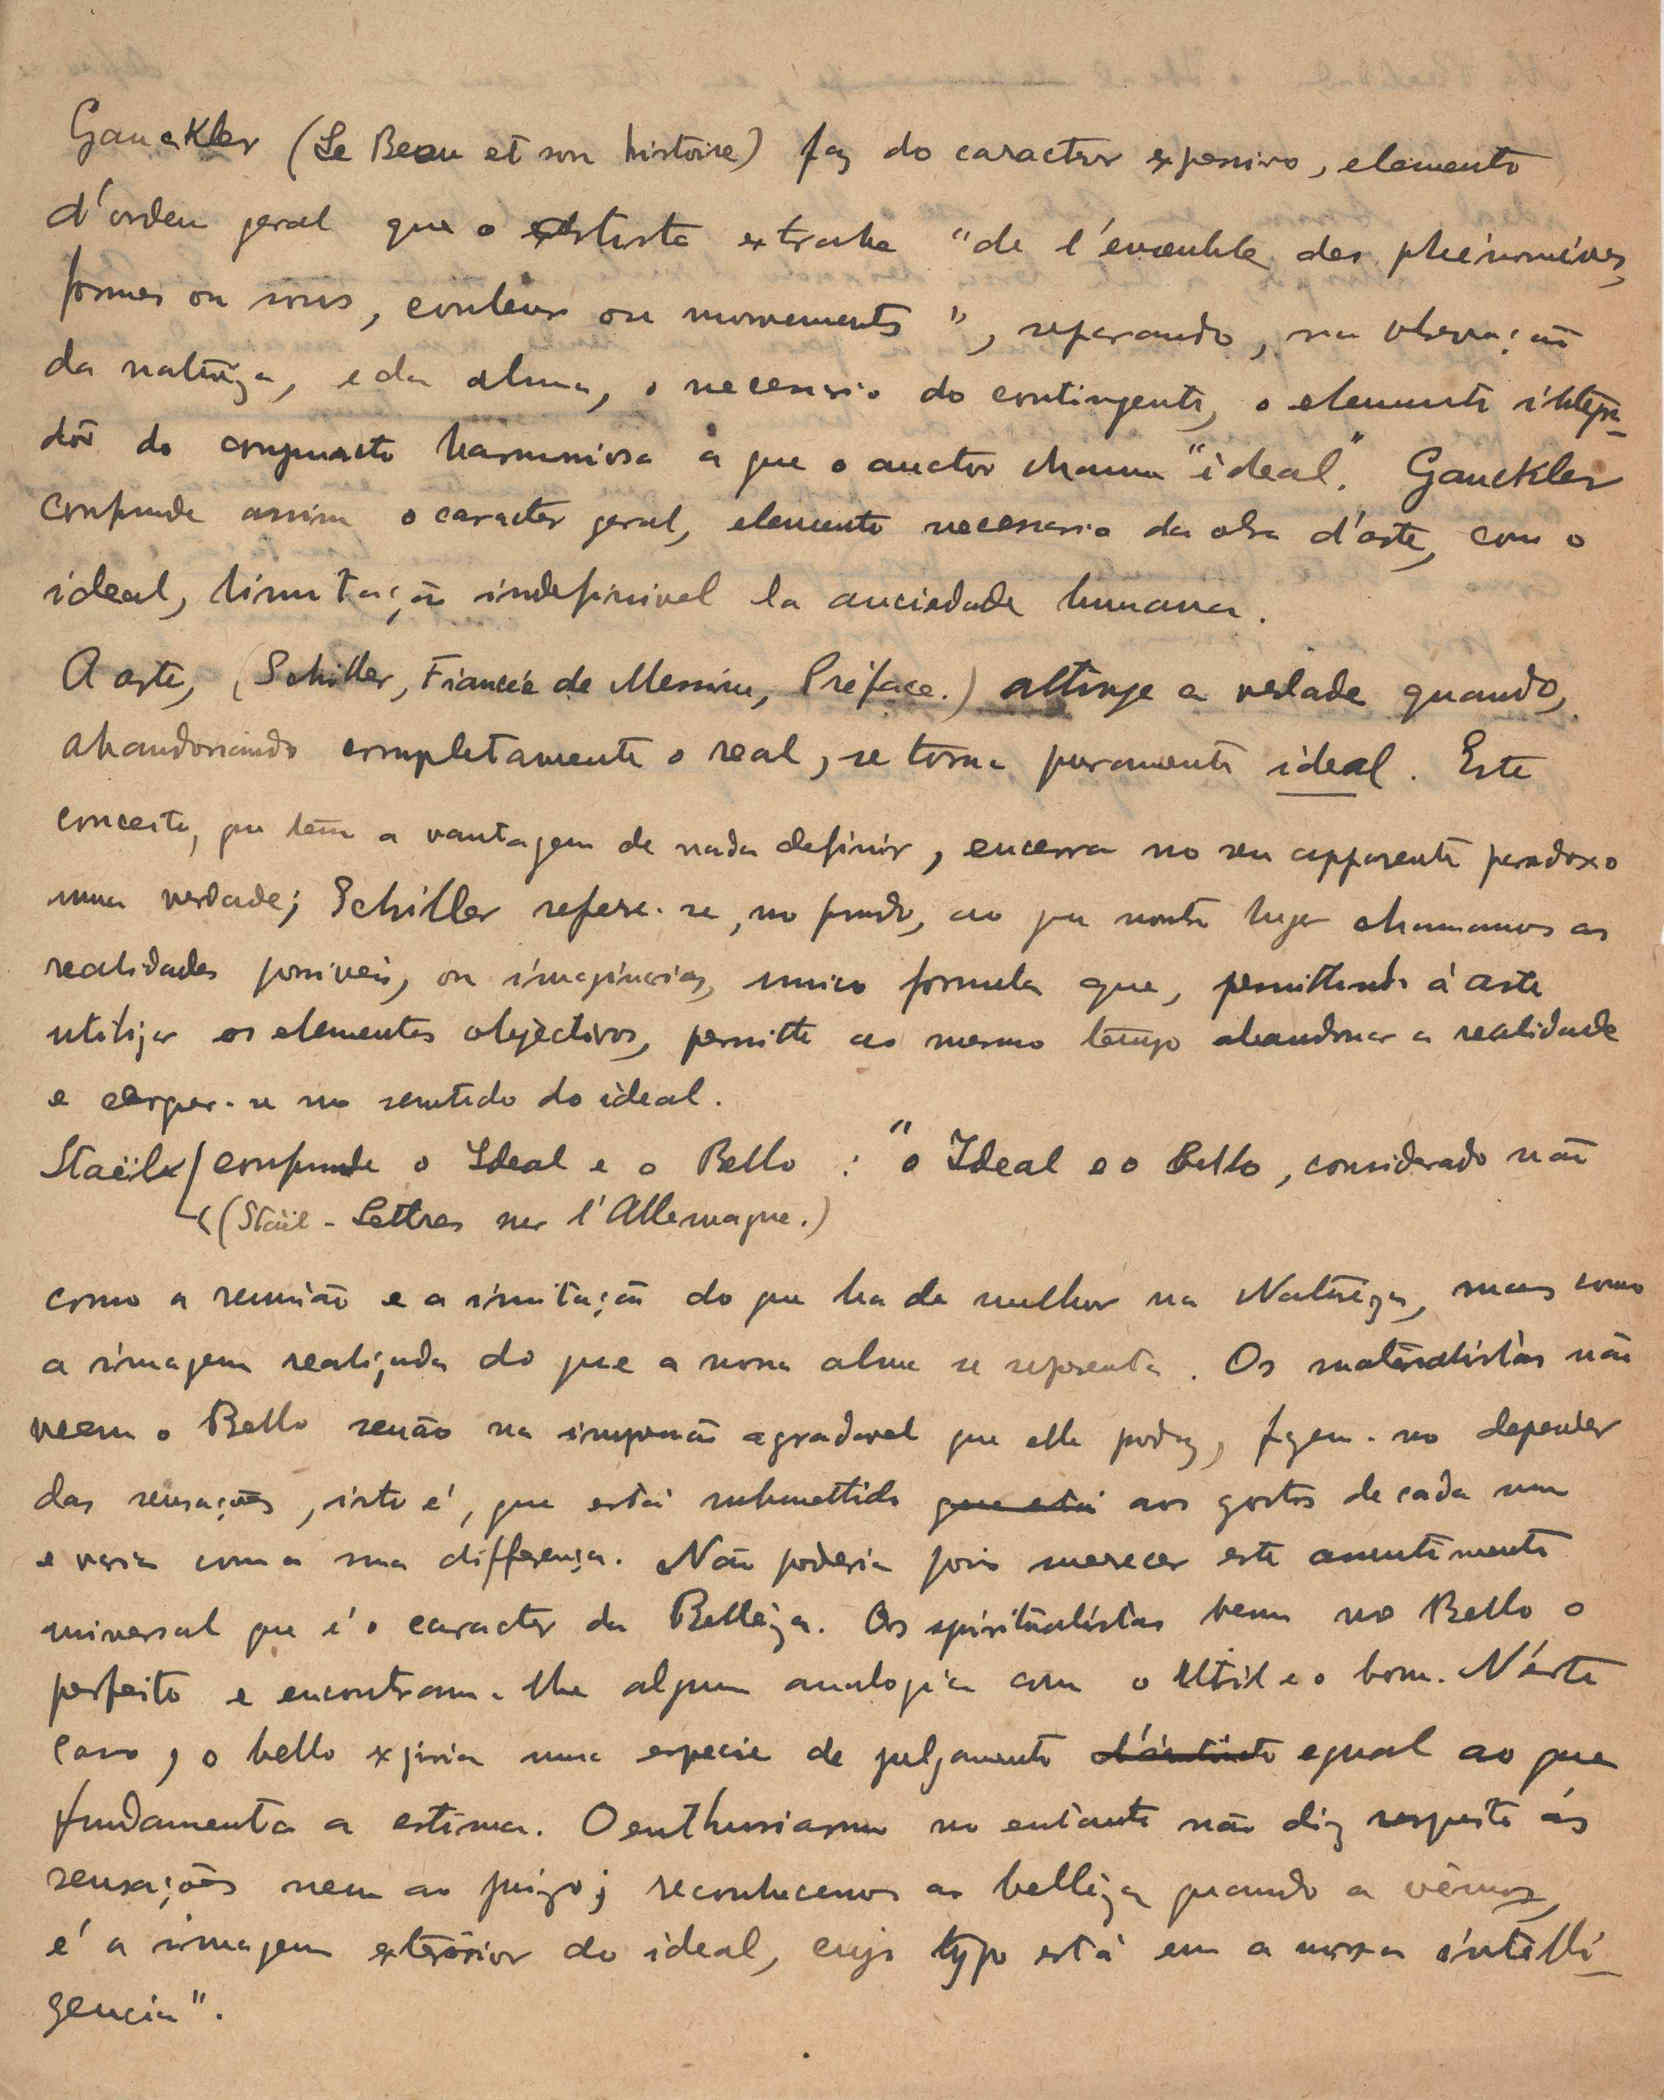 Gauckler (Le Beau et son histoire) faz do caracter expessivo, elemento
d'ordem geral que o artista extrahe "de l'ensemble des phénomènes,
formes ou sons, couleurs ou mouvements", separando, na observação
da natureza, e da alma, o necessario do contingente, o elemento integra-
dor do conjuncto harmonioso a que o auctor chama "ideal". Gauckler
confunde assim o caracter geral, elemento necessario da obra d'arte, com o
ideal, limitação indefinivel da anciedade humana.
A arte, (Schiller, Fiancée de Messine, Préface.) attinge a verdade quando,
abandonando completamente o real, se torna puramente ideal. Este
conceito, que tem a vantagem de nada definir, encerra no seu apparente paradoxo
uma verdade; Schiller refere-se, no fundo, ao que noutro lugar chamamos as
realidades possiveis, ou imaginarias, unica formula que, permittindo á arte
utilizar os elementos objectivos, permitte ao mesmo tempo abandonar a realidade
e erguer-se no sentido do ideal.
Staël confunde o Ideal e o Bello : "o Ideal e o Bello, considerado não
(Staël - Lettres sur l'Allemagne.)
como a reunião e a imitação do que ha de melhor na Natureza, mas como
a imagem realizada do que a nossa alma se representa. Os materialistas não
veem o Bello senão na impressão agradavel que elle produz, fazem-no depender
das sensações, isto é, que está submettido que está aos gostos de cada um
e varia com a sua differença. Não poderia pois merecer este assentimento
universal que é o caracter da Belleza. Os spiritualistas veem no Bello o
perfeito e encontram-lhe alguma analogia com o Util e o bom. N'este
caso, o bello exigiria uma especie de julgamento egual ao que
fundamenta a estima. O enthusiasmo no entanto não diz respeito ás
sensações nem ao juizo; reconhecemos a belleza quando a vêmos,
é a imagem exterior do ideal, cujo typo está em a nossa intelli-
gencia".